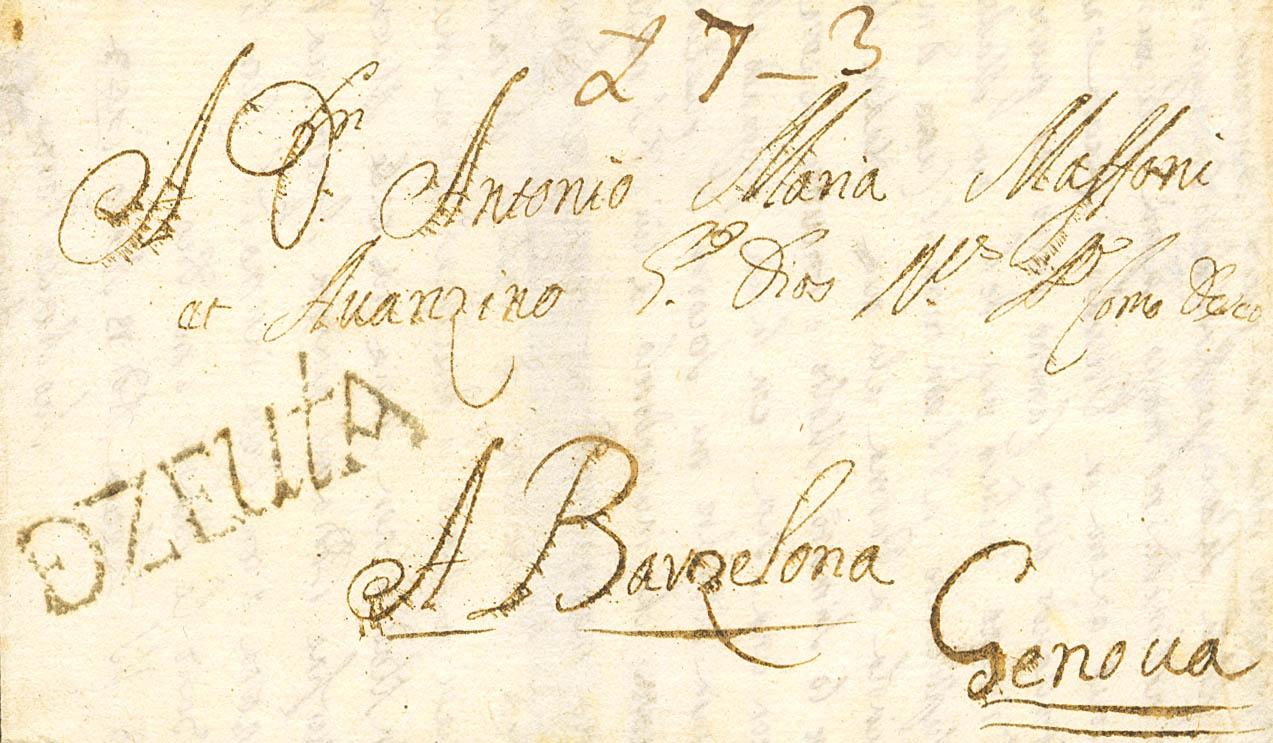 L 7-3
A Dn Antonio Maria Massoni
et Auanzino Gde Dios Ms As Como Deseo
DE ZEUTA
A Barzelona
Genoua